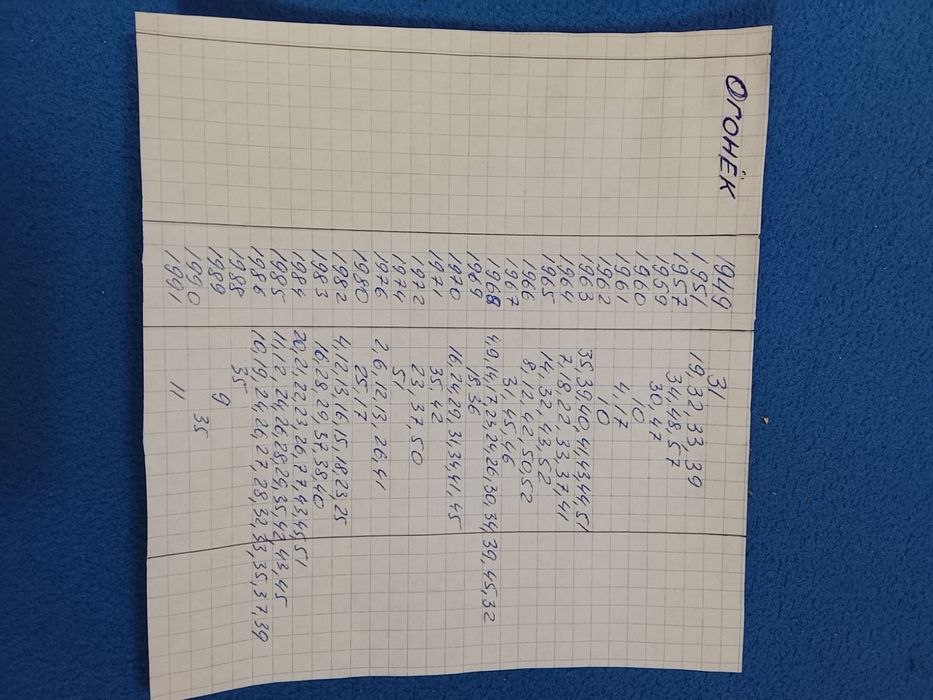 ОГОНЁК
1949 31
1951 19, 32, 33, 39
1957 34, 48, 57
1959 30, 47
1960 10
1961 4, 17
1962 10
1963 35, 39, 40, 41, 43, 44, 51
1964 7, 18, 22, 33, 37, 41
1965 14, 32, 43, 52
1966 8, 12, 42, 50, 52
1967 31, 45, 46
1968 4, 9, 14, 7, 23, 24, 26, 30, 34, 39, 45, 32
1969 18, 36
1970 16, 24, 29, 31, 34, 41, 45
1971 35, 42
1972 23, 37, 50
1974 51
1976 2, 6, 12, 13, 26, 41
1980 25, 17
1982 4, 12, 13, 16, 15, 18, 23, 25
1983 16, 28, 29, 37, 38, 40
1984 20, 21, 22, 23, 26, 7, 7, 43, 45, 51
1985 11, 12, 24, 26, 28, 29, 35, 42, 43, 45
1986 10, 19, 24, 26, 27, 28, 32, 33, 35, 37, 39
1988 35
1989 9
1990 35
1991 11